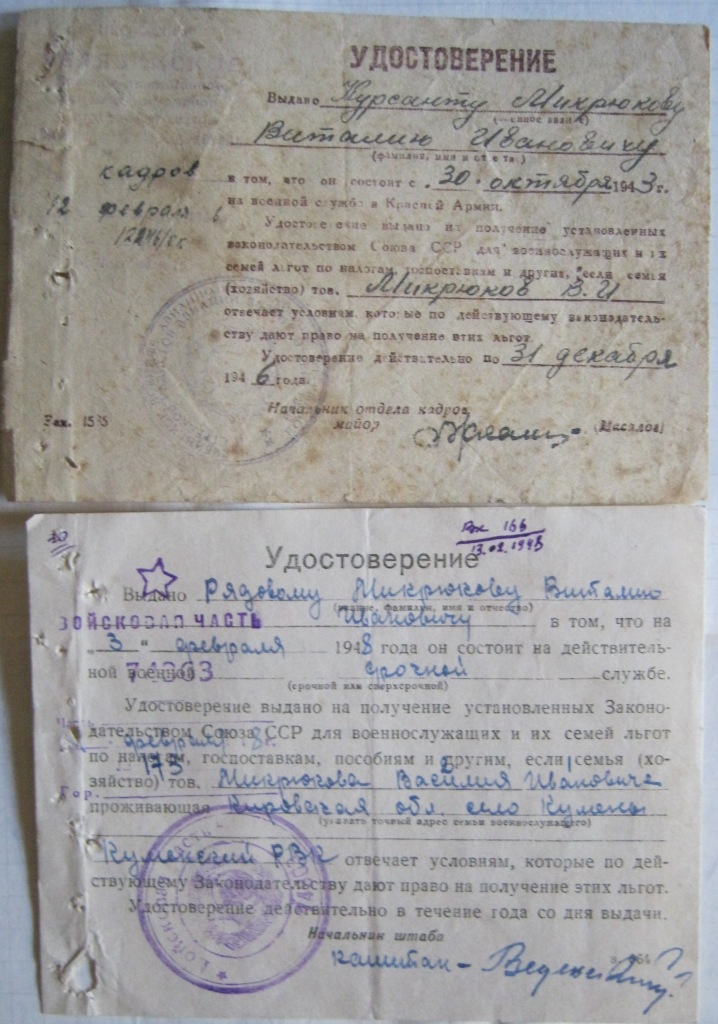 УДОСТОВЕРЕНИЕ
Выдано Курсанту Микрюкову
(военное звание)
Виталию Ивановичу
(фамилия, имя и отчество)
в том, что он состоит с 30 октября 1943 г.
на военной службе в Красной Армии.
кадров
12 февраля
Удостоверение выдано на получение установленных
законодательством Союза ССР для военнослужащих и их
семей льгот по налогам, госпоставкам и другим, если семья
(хозяйство) тов. Микрюков В.И
отвечает условиям, которые по действующему законодатель-
ству дают право на получение этих льгот.
Удостоверение действительно по 31 декабря
1946 года.
Начальник отдела кадров
майор (Масалов)
Зак. 1535
Вх 166
13.02.1948
Удостоверение
Выдано Рядовому Микрюкову Виталию
(звание, фамилия, имя и отчество)
ВОЙСКОВАЯ ЧАСТЬ
Ивановичу в том, что на
„3“ февраля 1948 года он состоит на действитель-
ной военной срочной службе.
74363
(срочной или сверхсрочной)
Удостоверение выдано на получение установленных Законо-
дательством Союза ССР для военнослужащих и их семей льгот
февраля 8
по налогам, госпоставкам, пособиям и другим, если семья (хо-
175
зяйство) тов. Микрюкова Василия Ивановича
Гор.
проживающая Кировская обл. село Кумены
(указать точный адрес семьи военнослужащего)
Куменский РВК отвечает условиям, которые по дей-
ствующему Законодательству дают право на получение этих льгот.
Удостоверение действительно в течение года со дня выдачи.
Начальник штаба
капитан –